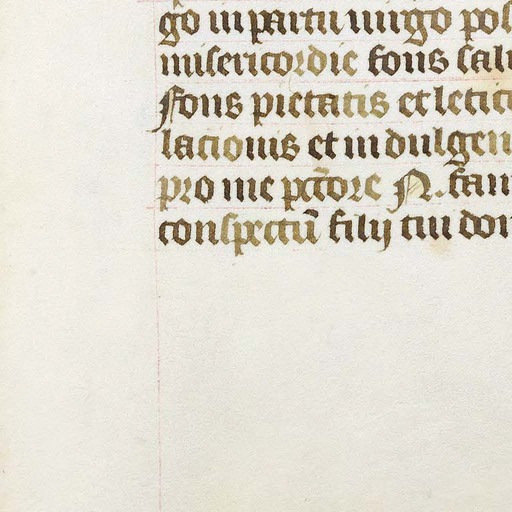 go in partu uirgo pos
misericordie fons salu
Fons pietatis et letici
lacionis et indulgen
pro me pctōre N. fam
conspectū filij tui dom